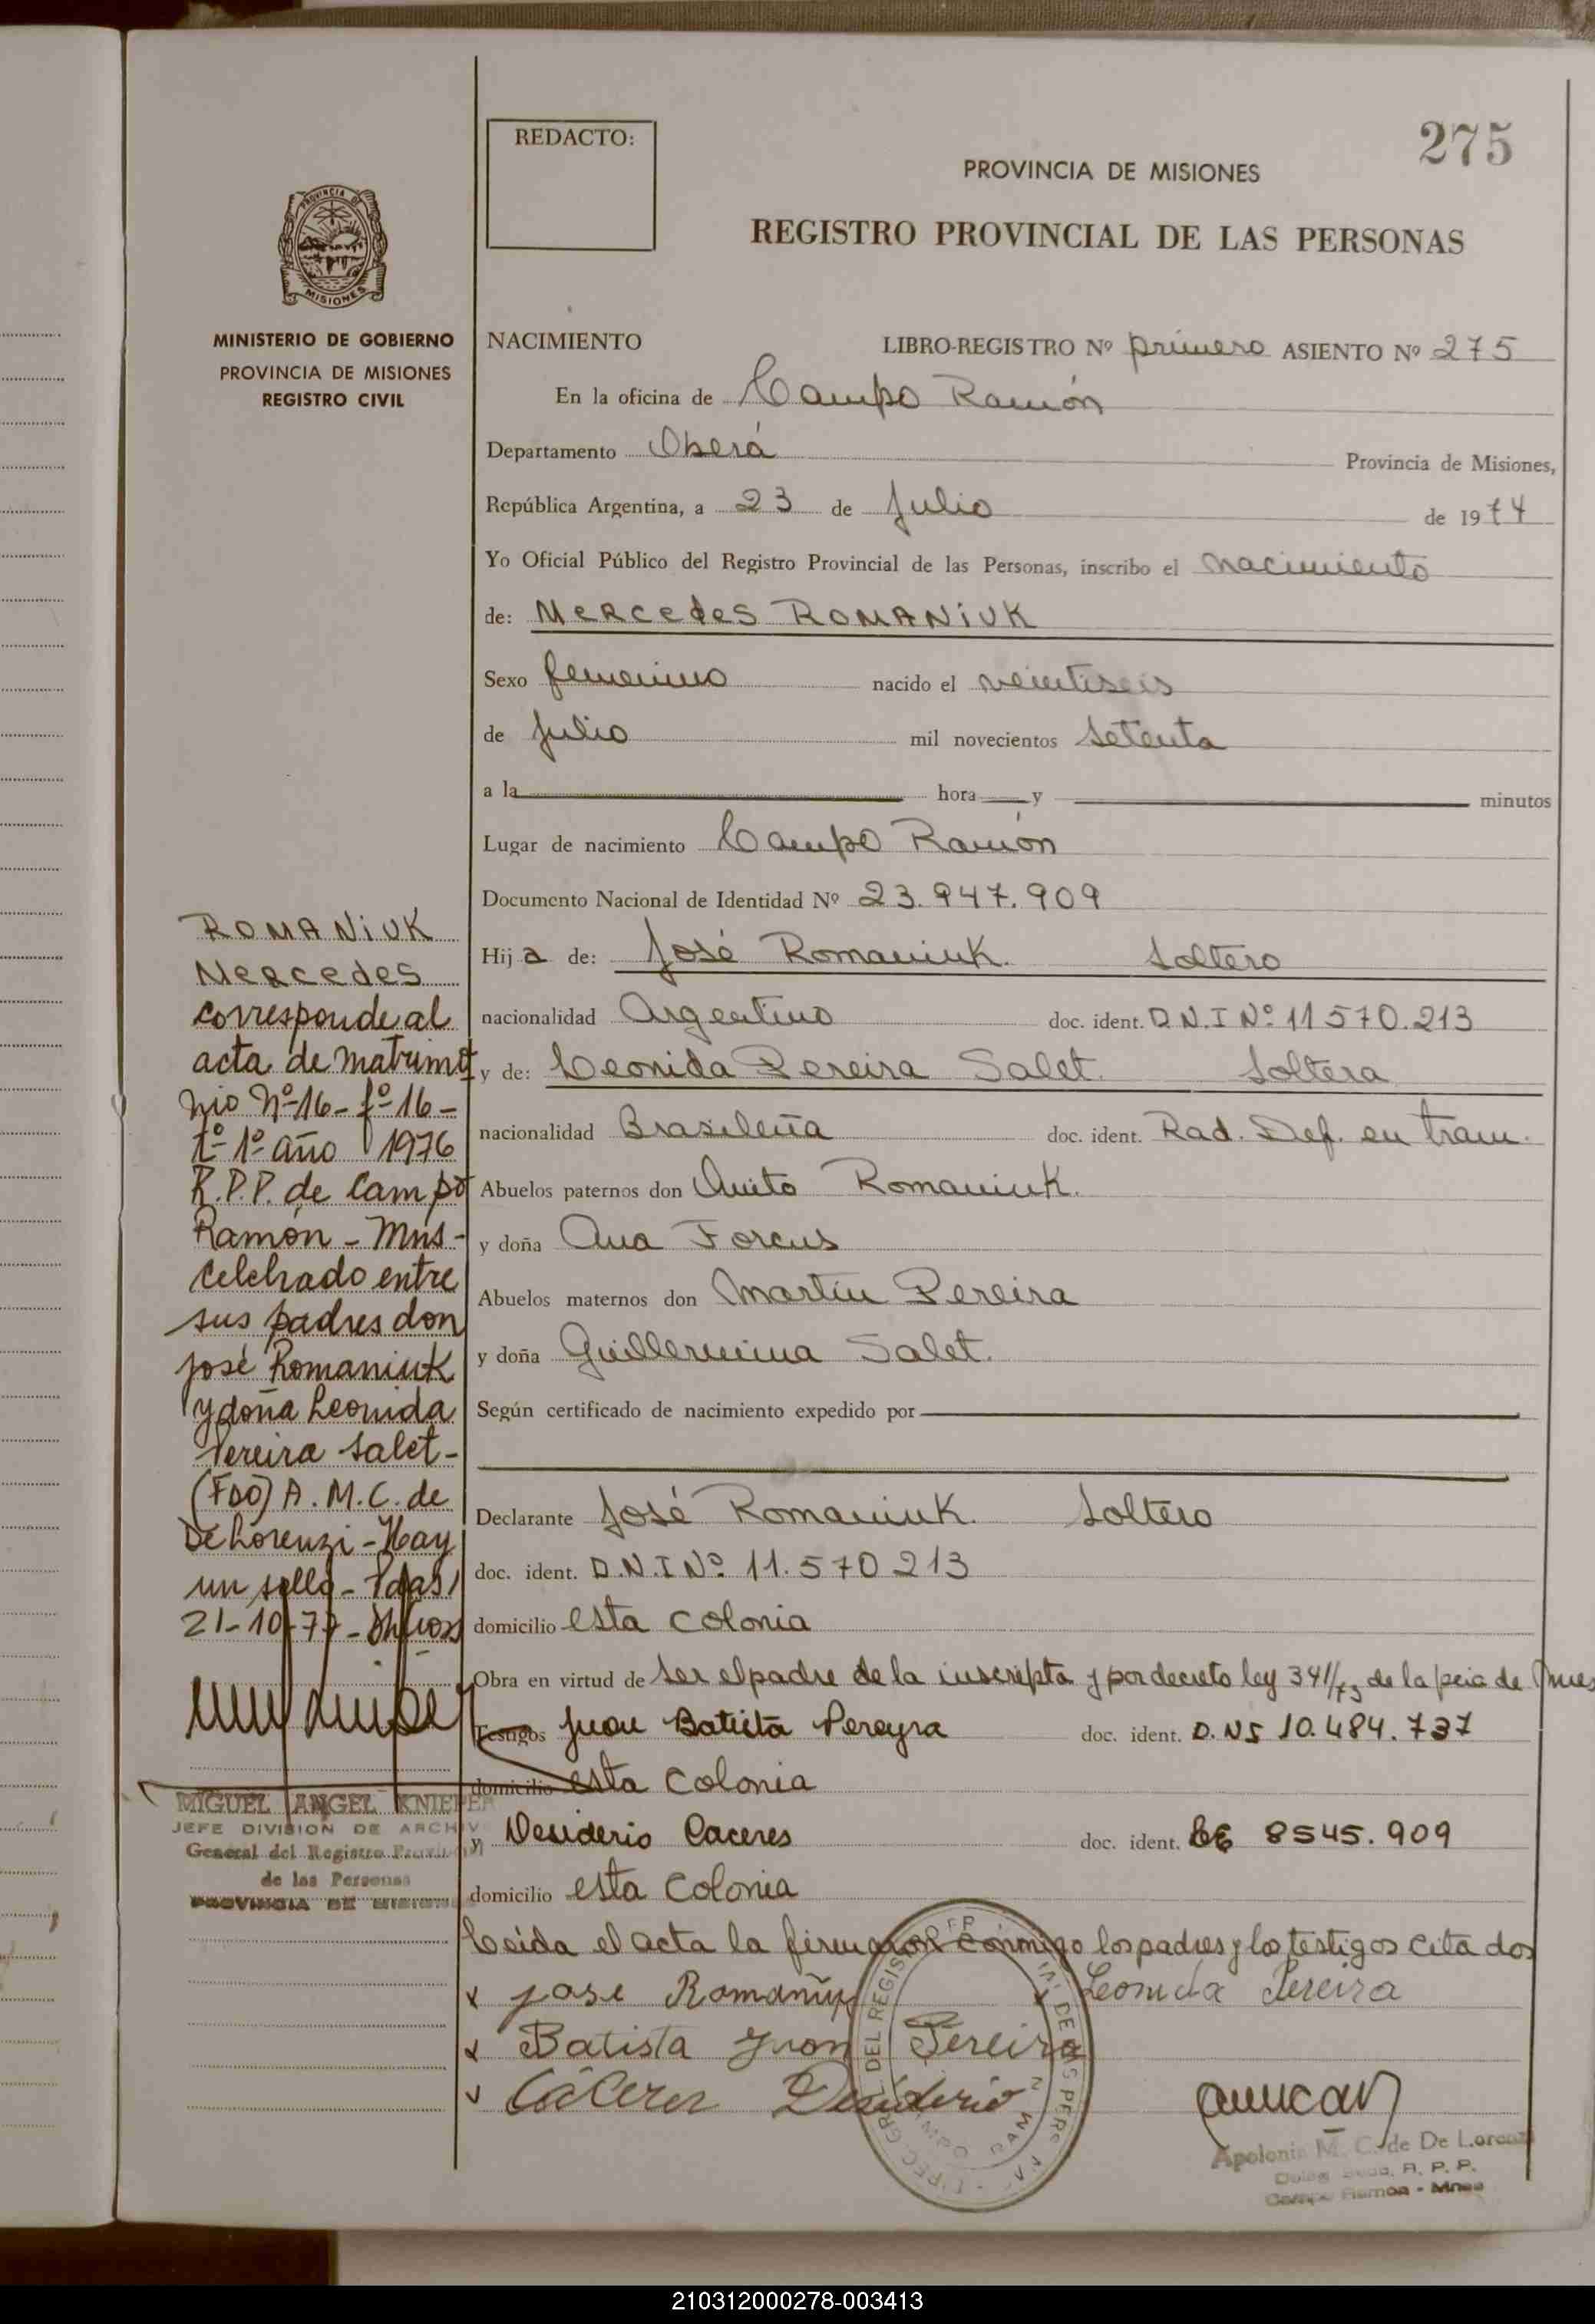 275
REDACTO:
PROVINCIA DE MISIONES
REGISTRO PROVINCIAL DE LAS PERSONAS
PROVINCIA DE
MISIONES
MINISTERIO DE GOBIERNO
PROVINCIA DE MISIONES
REGISTRO CIVIL
NACIMIENTO LIBRO-REGISTRO Nº primero ASIENTO Nº 275
En la oficina de Campo Ramón
Departamento Oberá Provincia de Misiones,
República Argentina, a 23 de Julio de 1974
Yo Oficial Público del Registro Provincial de las Personas, inscribo el nacimiento
de: MERCedes ROMANiUK
Sexo femenino nacido el veintiseis
de Julio mil novecientos setenta
a la hora y minutos
Lugar de nacimiento Campo Ramón
Documento Nacional de Identidad Nº 23.947.909
Hija de: José Romaniuk. Soltero
nacionalidad Argentino doc. ident. D.N.I Nº 11 570.213
y de: Leonida Pereira Salet. Soltera
nacionalidad Brasileña doc. ident. Rad. Def. en tram.
Abuelos paternos don Romaniuk.
y doña Ana Forcus
Abuelos maternos don Martin Pereira
y doña Guillermina Salet.
Según certificado de nacimiento expedido por
Declarante José Romaniuk. Soltero
doc. ident. D.N.I Nº 11.570 213
domicilio esta colonia
Obra en virtud de ser el padre de la inscripta y por decreto ley 341/73 de la pcia de Mnes
Testigos Juan Batista Pereyra doc. ident. D.NI 10.484.737
domicilio esta colonia
y Desiderio Caceres doc. ident. 8545.909
domicilio esta colonia
Leida el acta la firmaron conmigo los padres y los testigos citados
x jose Romaniuk x Leonida Pereira
x Batista Juan Pereira
x Cáceres Desiderio
Apolonia M. C. de De Lorenzi
R. P. P.
Campo Ramon - Mnes
ROMANiUK
Mercedes
corresponde al
acta de matrimo
nio Nº 16 - fº 16 -
tº 1º año 1976
R.P.P. de Campo
Ramón - Mns -
celebrado entre
sus padres don
José Romaniuk
y doña Leonida
Pereira Salet -
(Fdo) A. M. C. de
De Lorenzi - Hay
un sello - Pdas,
21-10-77 -
MIGUEL ANGEL KNIEFER
JEFE DIVISION DE ARCHIV
General del Registro Provincial
de las Personas
PROVINCIA DE MISIONES
210312000278-003413